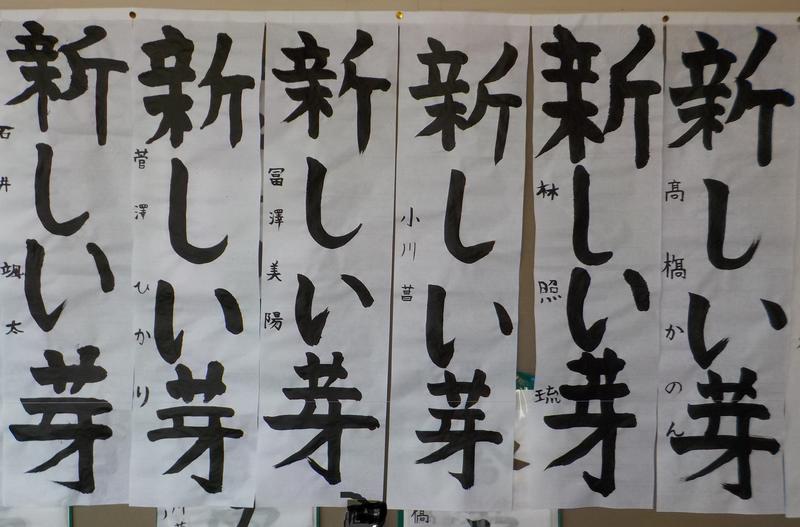 新しい芽
高橋かのん
新しい芽
林照琉
新しい芽
小川菖
新しい芽
冨澤美陽
新しい芽
菅澤ひかり
新しい芽
石井颯太